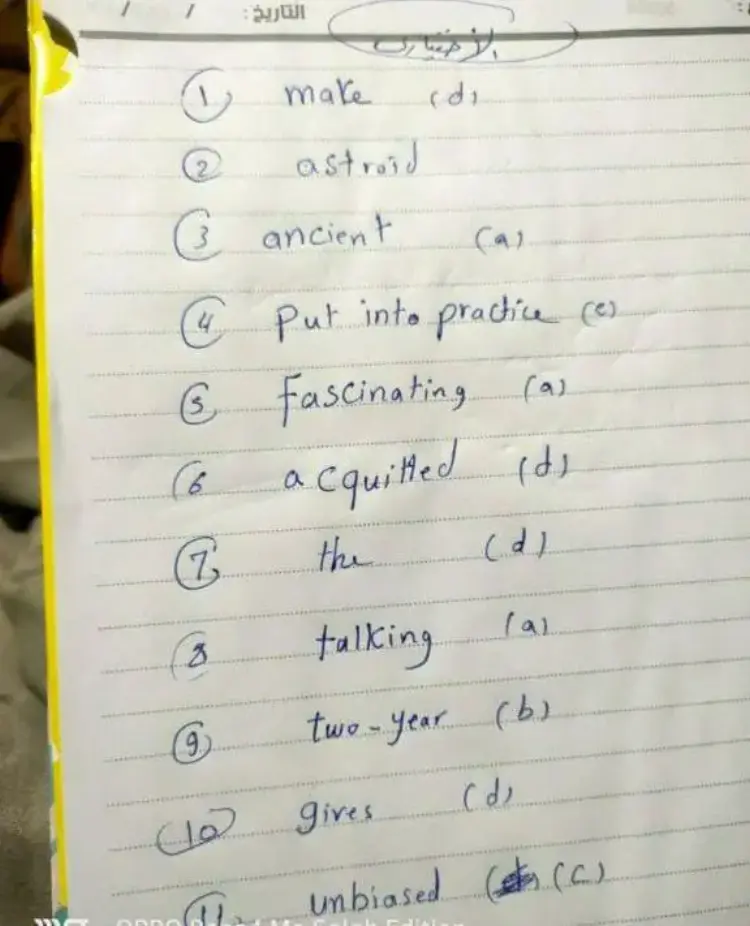 التاريخ: / /
الأختياري
1 make (d)
2 astroid
3 ancient (a)
4 put into practice (c)
5 fascinating (a)
6 acquitted (d)
7 the (d)
8 talking (a)
9 two-year (b)
10 gives (d)
11 unbiased (c)